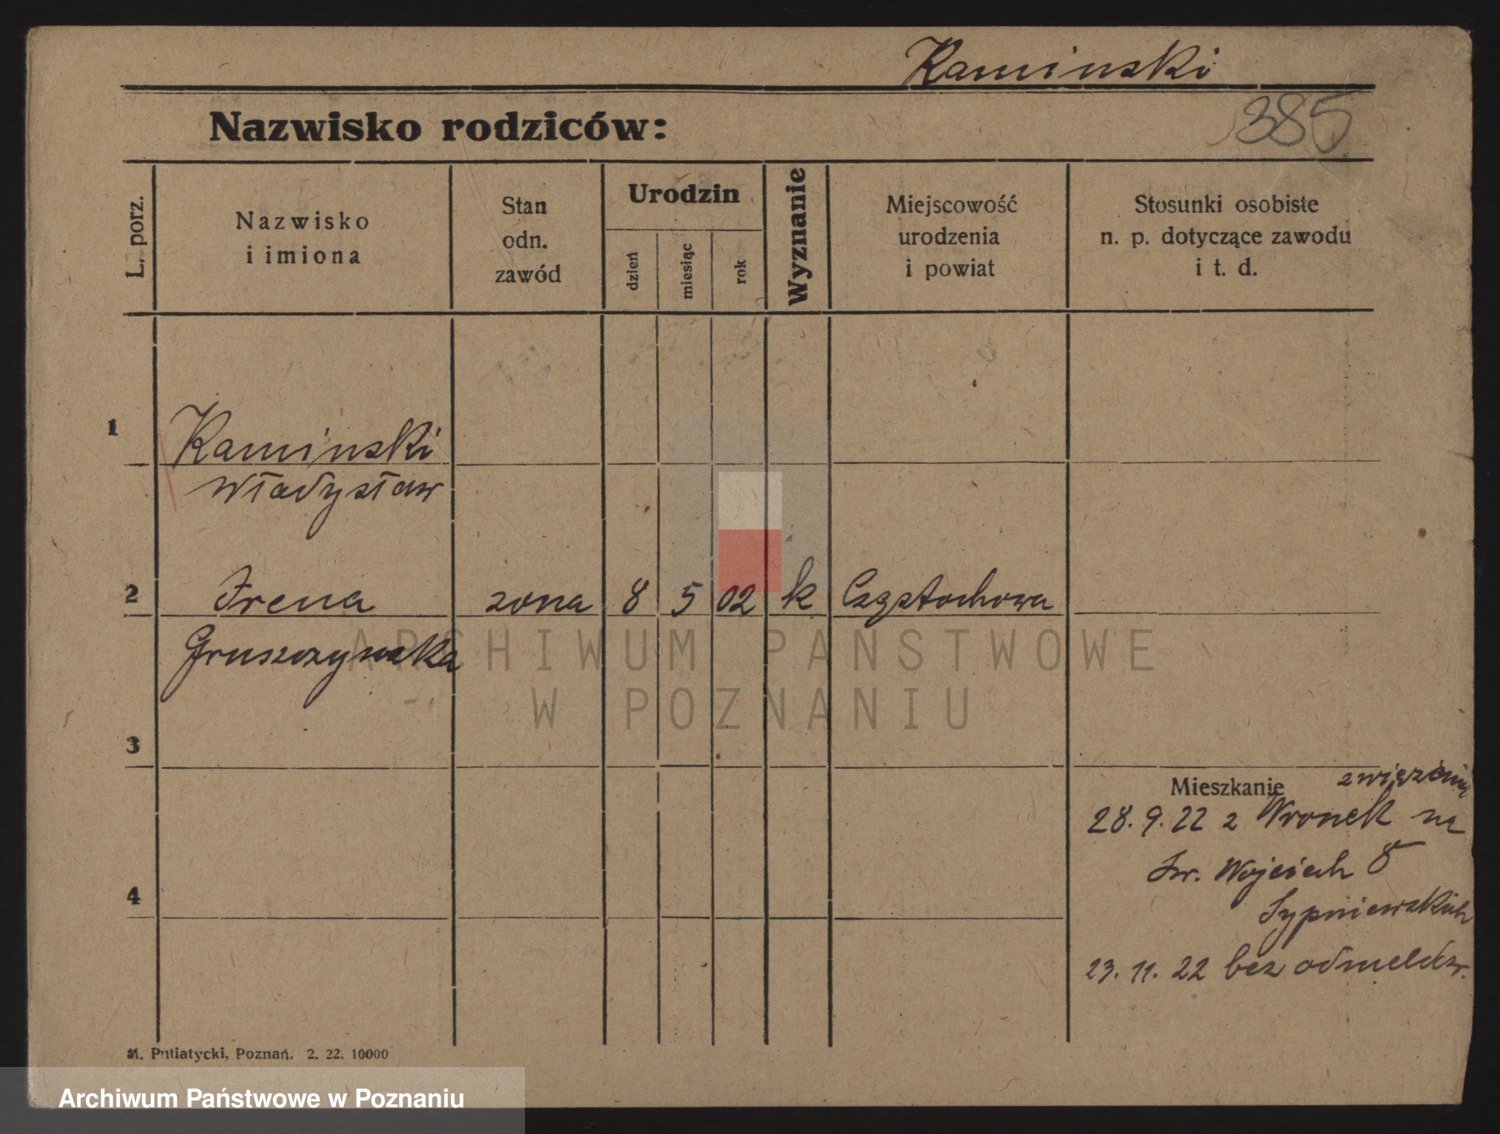 Kaminski
Nazwisko rodziców:
385
L. porz.
Nazwisko
i imiona
Stan
odn.
zawód
Urodzin
dzień
miesiąc
rok
Wyznanie
Miejscowość
urodzenia
i powiat
Stosunki osobiste
n. p. dotyczące zawodu
i t. d.
1
Kaminski
Władysław
2
Irena
żona
8
5
02
k
Częstochowa
Gruszczynska
ARCHIWUM PAŃSTWOWE
W POZNANIU
3
Mieszkanie
28. 9. 22 z Wronek na
Św. Wojciech 8
4
Sypniewskich
23. 11. 22 bez odmeldow.
M. Putiatycki, Poznań. 2. 22. 10000
Archiwum Państwowe w Poznaniu